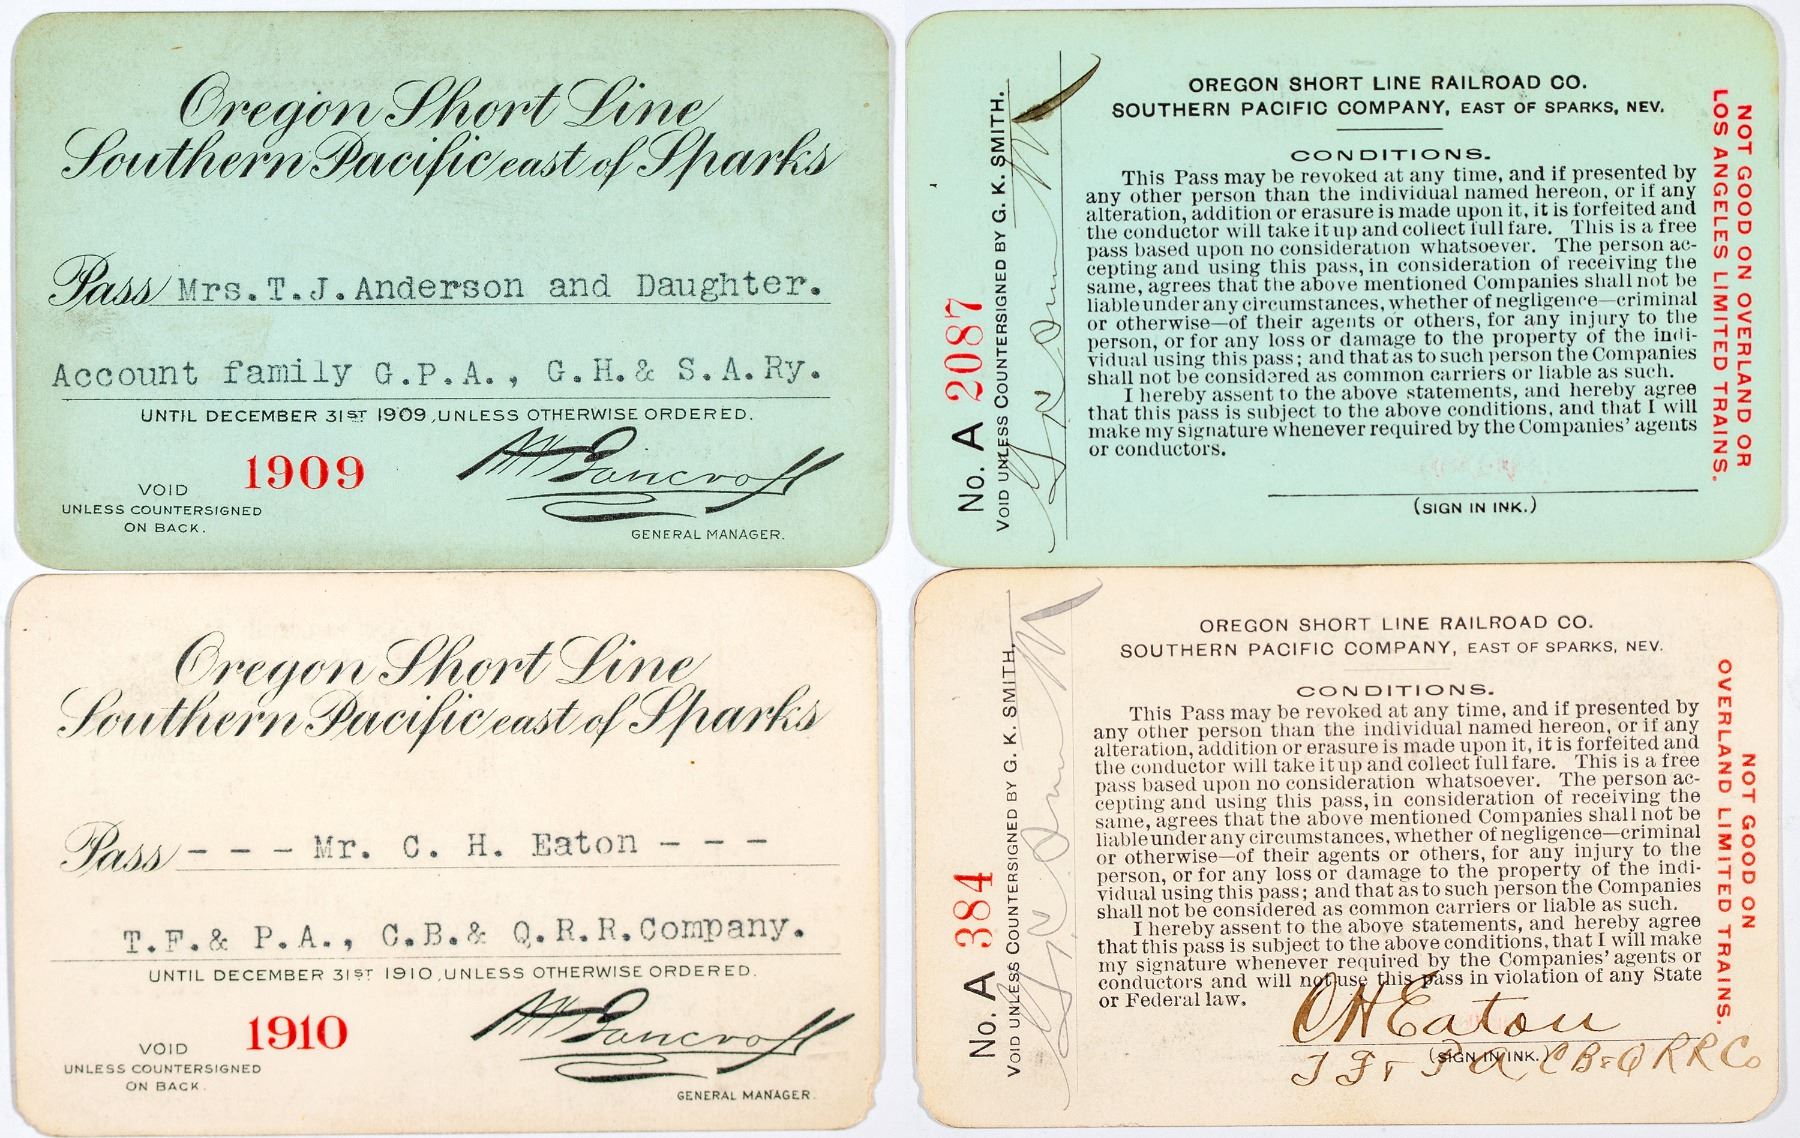 Oregon Short Line
Southern Pacific east of Sparks
Pass Mrs. T. J. Anderson and Daughter.
Account family G.P.A., G.H.& S.A.Ry.
UNTIL DECEMBER 31ST 1909, UNLESS OTHERWISE ORDERED.
1909
VOID
UNLESS COUNTERSIGNED
ON BACK.
GENERAL MANAGER.
OREGON SHORT LINE RAILROAD CO.
SOUTHERN PACIFIC COMPANY, EAST OF SPARKS, NEV.
CONDITIONS.
This Pass may be revoked at any time, and if presented by
any other person than the individual named hereon, or if any
alteration, addition or erasure is made upon it, it is forfeited and
the conductor will take it up and collect full fare. This is a free
pass based upon no consideration whatsoever. The person ac-
cepting and using this pass, in consideration of receiving the
same, agrees that the above mentioned Companies shall not be
liable under any circumstances, whether of negligence—criminal
or otherwise—of their agents or others, for any injury to the
person, or for any loss or damage to the property of the indi-
vidual using this pass; and that as to such person the Companies
shall not be considered as common carriers or liable as such.
I hereby assent to the above statements, and hereby agree
that this pass is subject to the above conditions, and that I will
make my signature whenever required by the Companies' agents
or conductors.
(SIGN IN INK.)
No. A 2087
VOID UNLESS COUNTERSIGNED BY G. K. SMITH.
NOT GOOD ON OVERLAND OR
LOS ANGELES LIMITED TRAINS.
Oregon Short Line
Southern Pacific east of Sparks
Pass - - - Mr. C. H. Eaton - - -
T.F.& P.A., C.B.& Q.R.R.Company.
UNTIL DECEMBER 31ST 1910, UNLESS OTHERWISE ORDERED.
1910
VOID
UNLESS COUNTERSIGNED
ON BACK.
GENERAL MANAGER.
OREGON SHORT LINE RAILROAD CO.
SOUTHERN PACIFIC COMPANY, EAST OF SPARKS, NEV.
CONDITIONS.
This Pass may be revoked at any time, and if presented by
any other person than the individual named hereon, or if any
alteration, addition or erasure is made upon it, it is forfeited and
the conductor will take it up and collect full fare. This is a free
pass based upon no consideration whatsoever. The person ac-
cepting and using this pass, in consideration of receiving the
same, agrees that the above mentioned Companies shall not be
liable under any circumstances, whether of negligence—criminal
or otherwise—of their agents or others, for any injury to the
person, or for any loss or damage to the property of the indi-
vidual using this pass; and that as to such person the Companies
shall not be considered as common carriers or liable as such.
I hereby assent to the above statements, and hereby agree
that this pass is subject to the above conditions, that I will make
my signature whenever required by the Companies' agents or
conductors and will not use this pass in violation of any State
or Federal law.
C H Eaton
(SIGN IN INK.)
T F & P A C B & Q R R Co
No. A 384
VOID UNLESS COUNTERSIGNED BY G. K. SMITH.
NOT GOOD ON
OVERLAND LIMITED TRAINS.